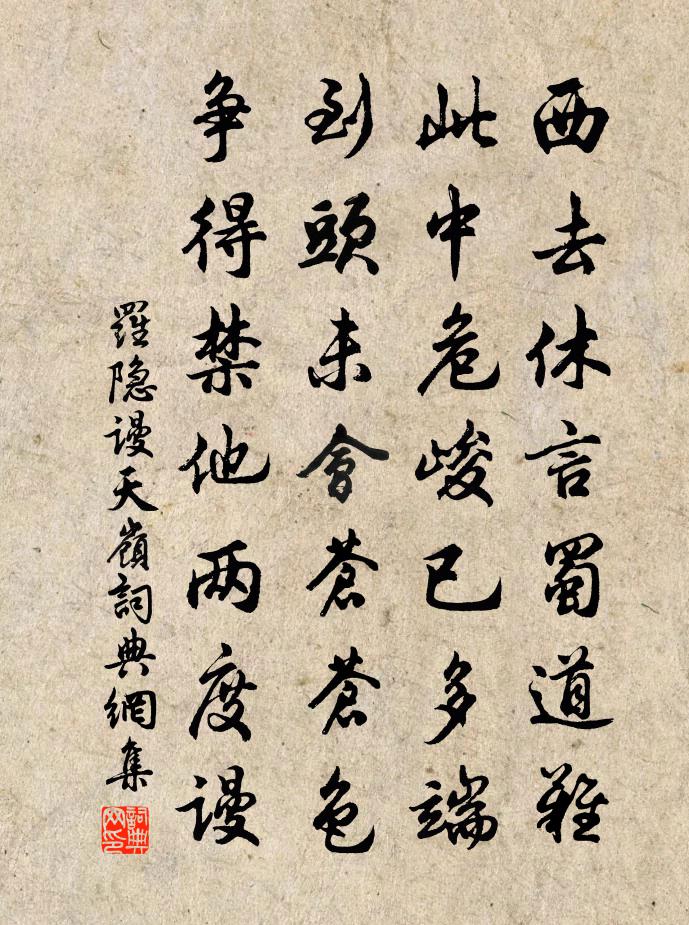 西去休言蜀道難
此中危峻已多端
到頭未會蒼蒼色
争得禁他两度謾
羅隐謾天嶺詞典網集
詞典网印